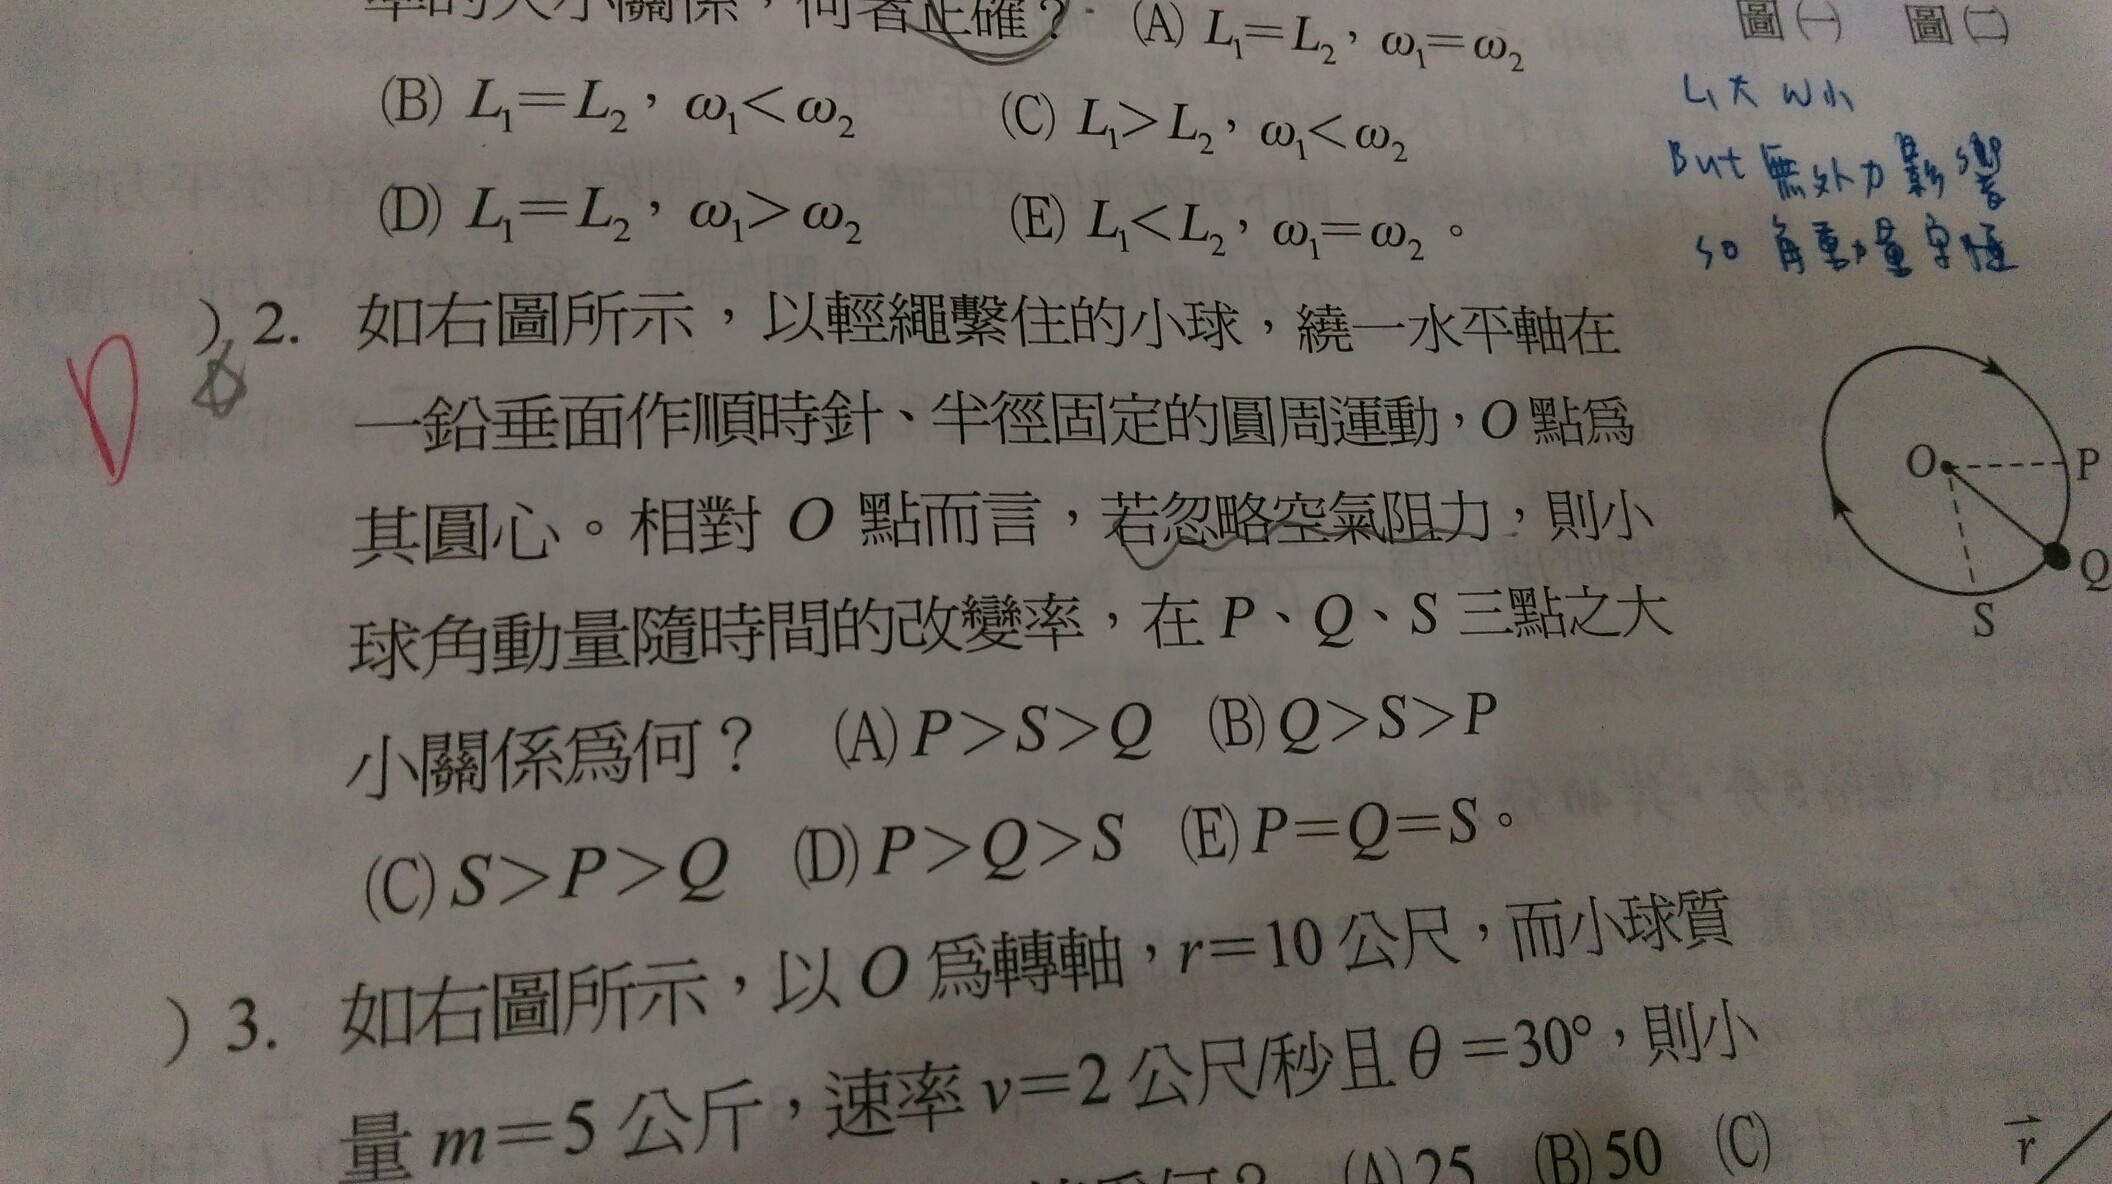 率的大小關係，何者正確？ (A) L₁=L₂，ω₁=ω₂
圖(一) 圖(二)
(B) L₁=L₂，ω₁<ω₂ (C) L₁>L₂，ω₁<ω₂
(D) L₁=L₂，ω₁>ω₂ (E) L₁<L₂，ω₁=ω₂。
L₁大 w小
But 無外力影響
so 角動量守恆
D
)2. 如右圖所示，以輕繩繫住的小球，繞一水平軸在
一鉛垂面作順時針、半徑固定的圓周運動，O點為
其圓心。相對 O 點而言，若忽略空氣阻力，則小
球角動量隨時間的改變率，在 P、Q、S 三點之大
小關係為何？ (A) P>S>Q (B) Q>S>P
(C) S>P>Q (D) P>Q>S (E) P=Q=S。
O P
Q
S
)3. 如右圖所示，以 O 為轉軸，r=10 公尺，而小球質
量 m=5 公斤，速率 v=2 公尺/秒且 θ=30°，則小
為何？ (A) 25 (B) 50 (C)
r